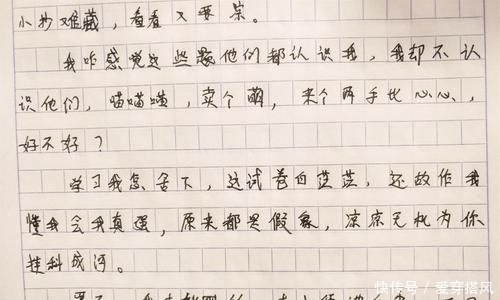 小抄难藏，看看又要宗。
我咋感觉这些题他们都认识我，我却不认
识他们，喵喵喵，卖个萌，来个两手比心心，
好不好？
学习我怎舍下，这试卷白茫茫，还故作我
懂我会我真强，原来都是假象，凉凉天机为你
挂科成河。
快传号／爱穿搭风